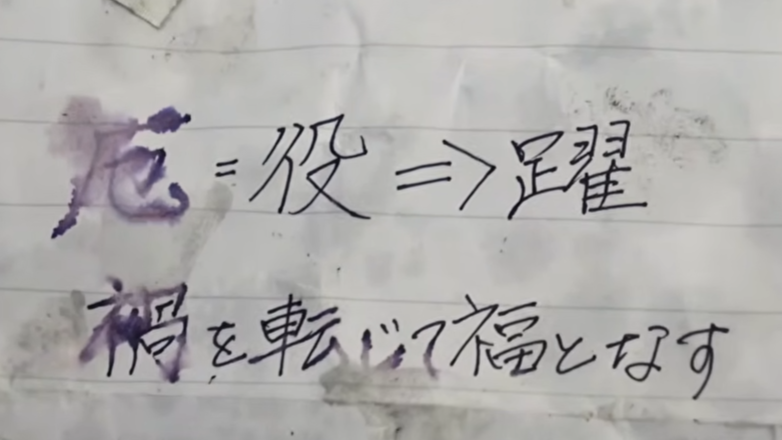 厄=役⇒躍
禍を転じて福となす